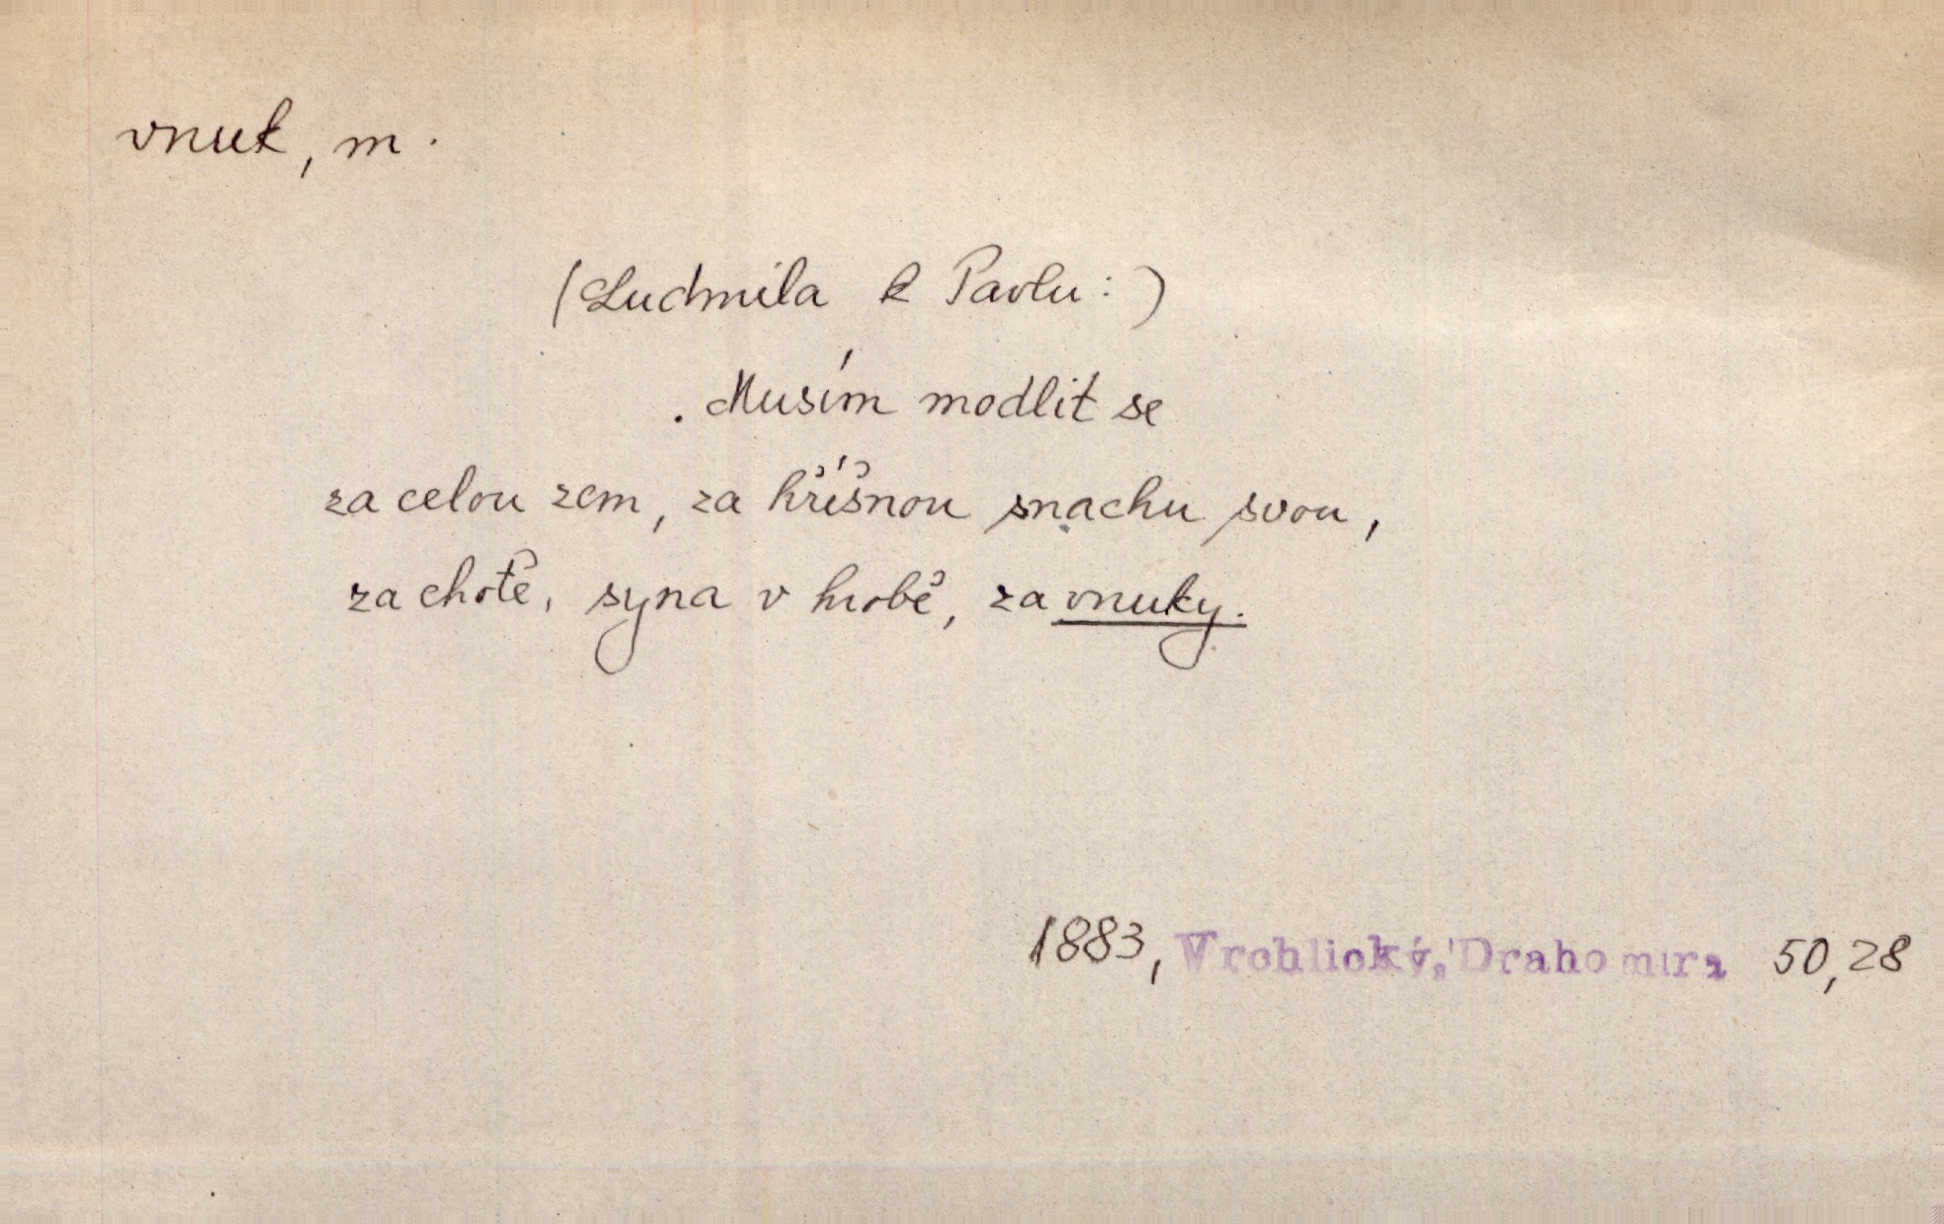 vnuk, m.
(Ludmila k Pavlu:)
. Musím modlit se
za celou zem, za hříšnou snachu svou,
za chotě, syna v hrobě, za vnuky.
1883, Vrchlický, Drahomíra 50,28